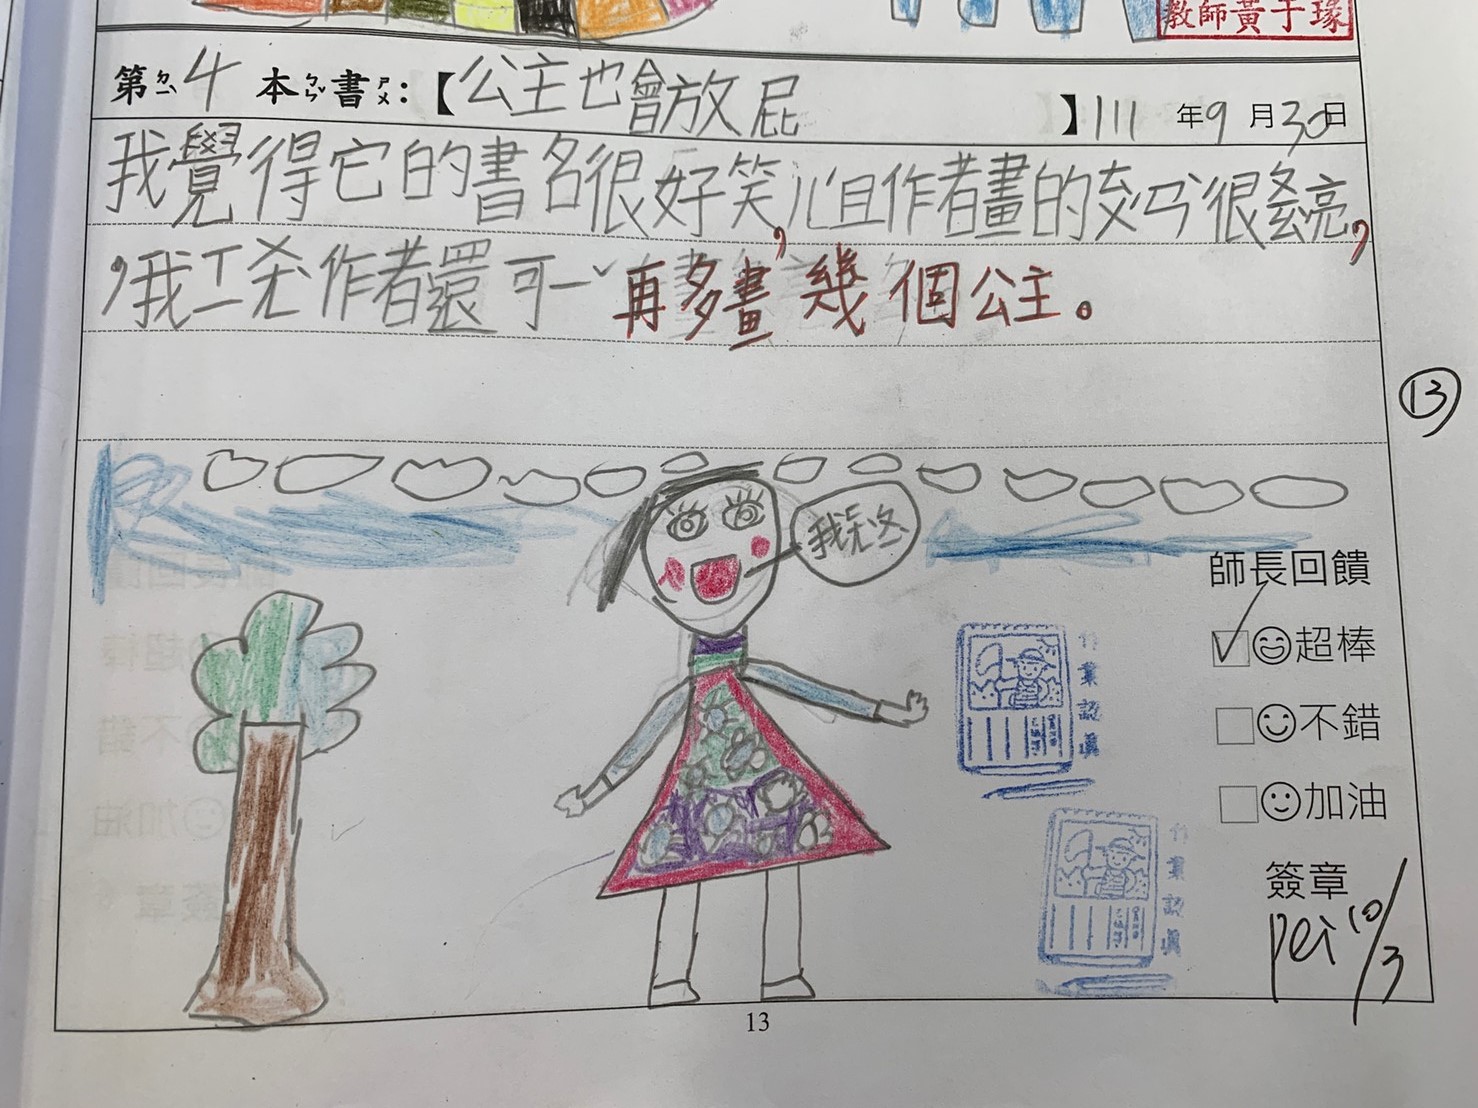 教師黃于瑑
第ㄉㄧˋ 4 本ㄅㄣˇ書ㄕㄨ:【公主也會放屁】111 年 9 月 30 日
我覺得它的書名很好笑,而且作者畫的 很漂亮,
,我 作者還可一ˇ再多畫幾個公主。
13
師長回饋
✓ 超棒
不錯
加油
作業認真
作業認真
簽章
pei 10/3
13